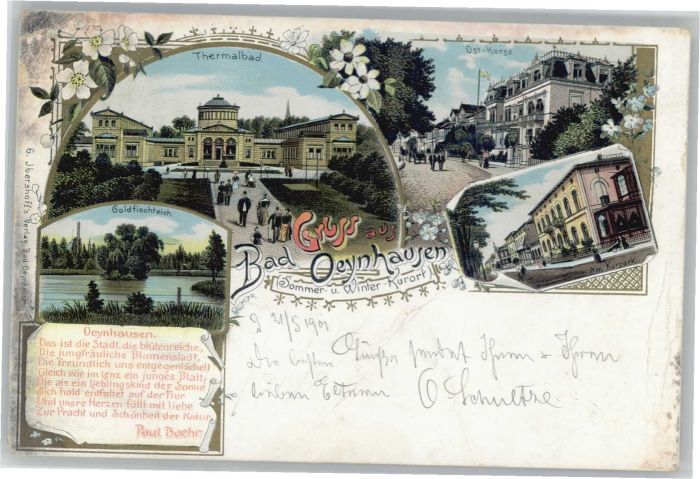 Thermalbad.
Ost-Korso
Goldfischteich.
Am Kurpark
Gruss aus
Bad Oeynhausen
(Sommer- u. Winter-Kurort)
G. Ibershoff's Verlag, Bad Oeynhausen
Oeynhausen.
Das ist die Stadt, die blütenreiche,
Die jungfräuliche Blumenstadt,
Die freundlich uns entgegenlächelt
Gleich wie im lenz ein junges Blatt,
Die als ein lieblingskind der Sonne
Sich hold entfaltet auf der Flur
Und unsre Herzen füllt mit liebe
Zur Pracht und Schönheit der Natur.
Paul Baehr
21/5 1901
Die besten Grüße sendet Ihnen & Ihren
lieben Eltern O Schultze